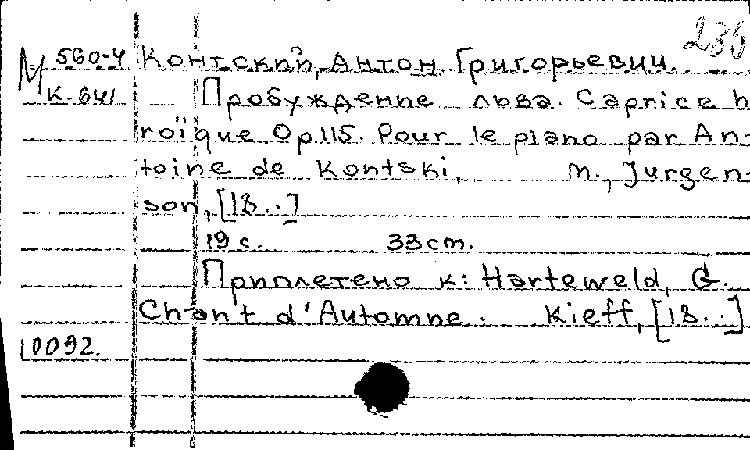 235
М 560-4 Контский, Антон Григорьевич.
К-641 Пробуждение льва. Caprice h
roïque Op.115. Pour le piano par An-
toine de Kontski, M., Jurgen-
son, [18..]
19 с. 33 cm.
Приплетено к: Harteweld, G.
Chant d'Automne. Kieff, [18..]
10092.